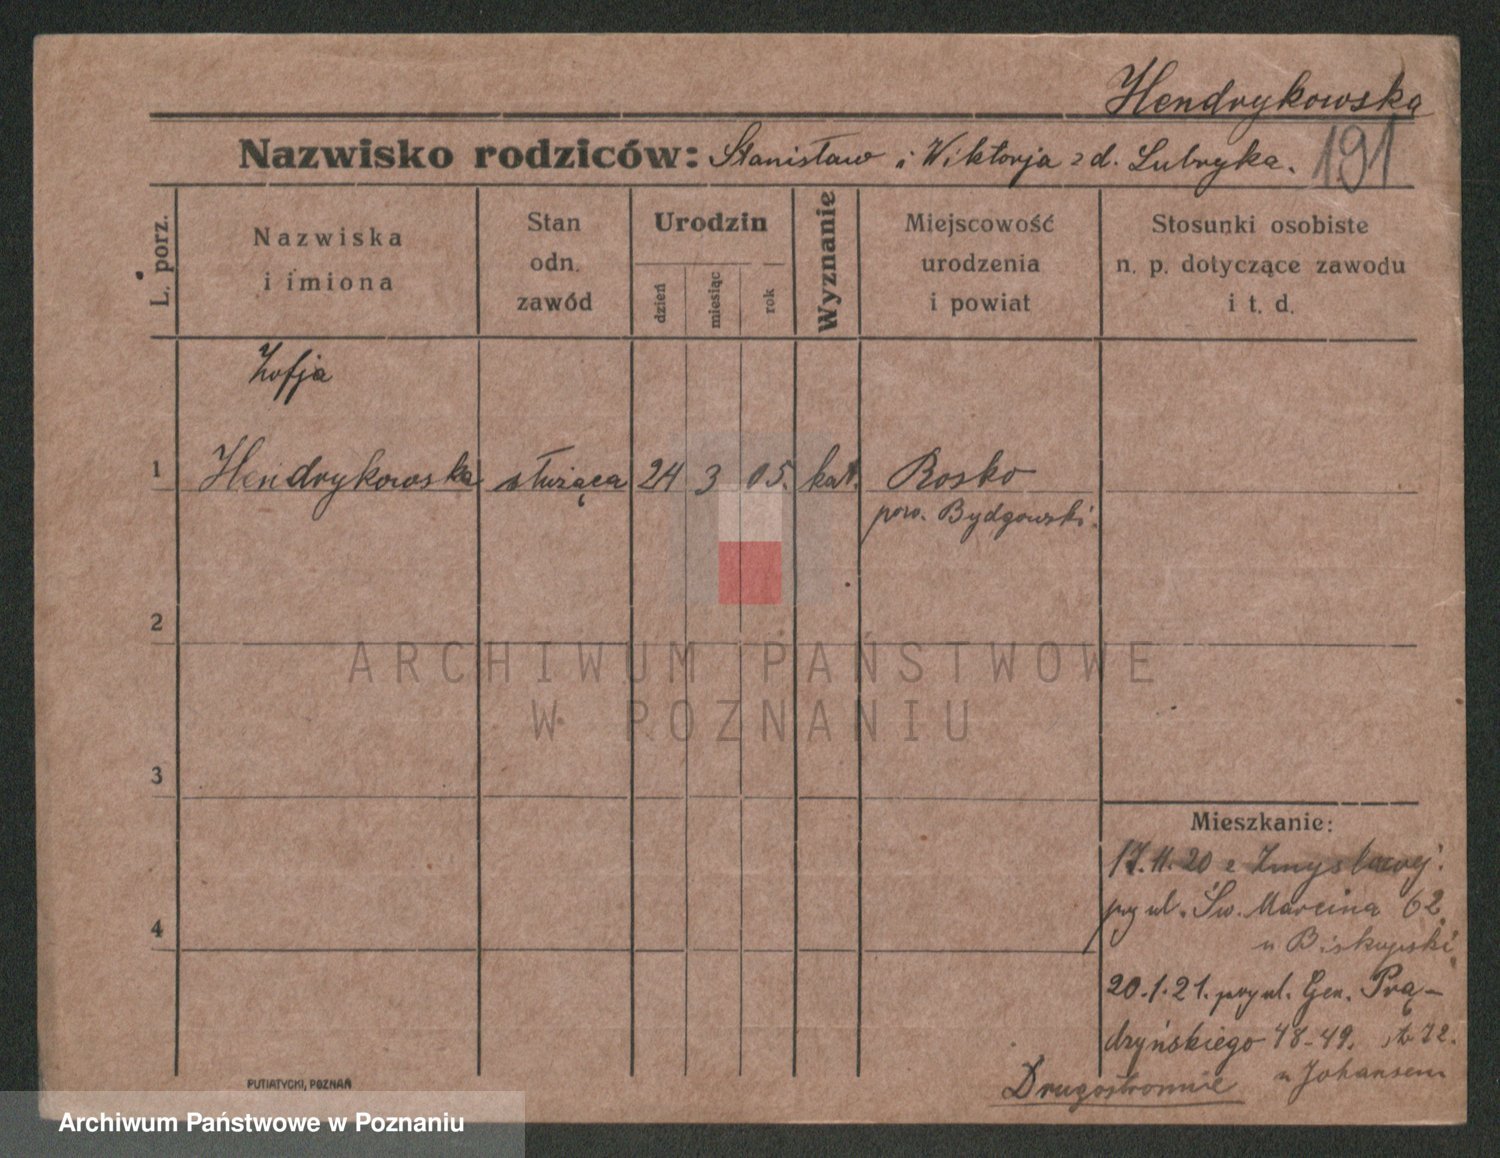 Hendrykowska
Nazwisko rodziców: Stanisław i Wiktorja z d. Lubryka.
191
L. porz.
Nazwiska
i imiona
Stan
odn.
zawód
Urodzin
dzień
miesiąc
rok
Wyznanie
Miejscowość
urodzenia
i powiat
Stosunki osobiste
n. p. dotyczące zawodu
i t. d.
Zofja
1 Hendrykowska służąca 24 3 05. kat. Rosko
pow. Bydgowski.
2
ARCHIWUM PAŃSTWOWE
W POZNANIU
3
Mieszkanie:
17.11.20 z Zmysłowej:
przy ul. Św. Marcina 62.
u Biskupski.
4
20.1.21. przy ul. Gen. Prą-
dzyńskiego 48-49. 72.
u Johansem
Drugostronnie
PUTIATYCKI, POZNAŃ
Archiwum Państwowe w Poznaniu